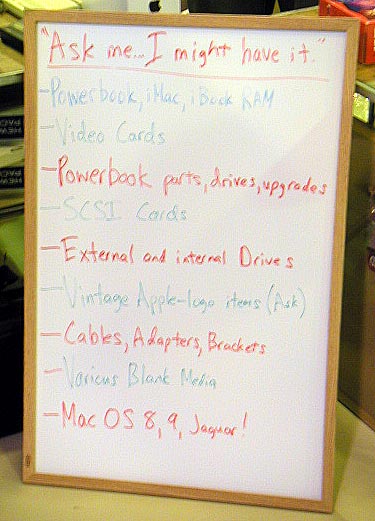 "Ask me... I might have it."
-Powerbook, iMac, iBook RAM
-Video Cards
-Powerbook parts, drives, upgrades
-SCSI Cards
-External and internal Drives
-Vintage Apple-logo items (Ask)
-Cables, Adapters, Brackets
-Various Blank Media
-Mac OS 8, 9, Jaguar!